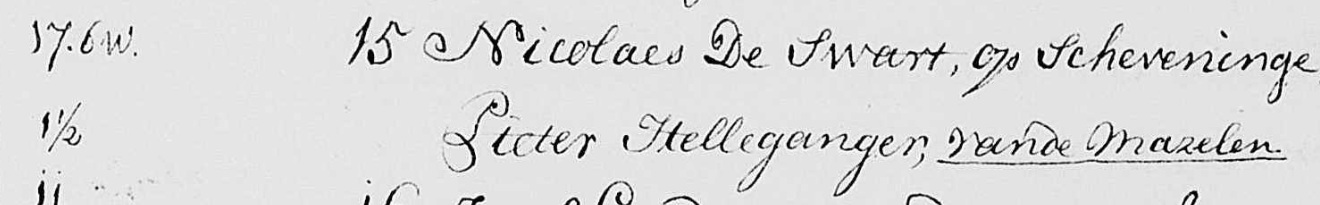 17.6w. 15 Nicolaes De Swart, op Scheveninge
1½ Pieter Stelleganger, vande Mazelen